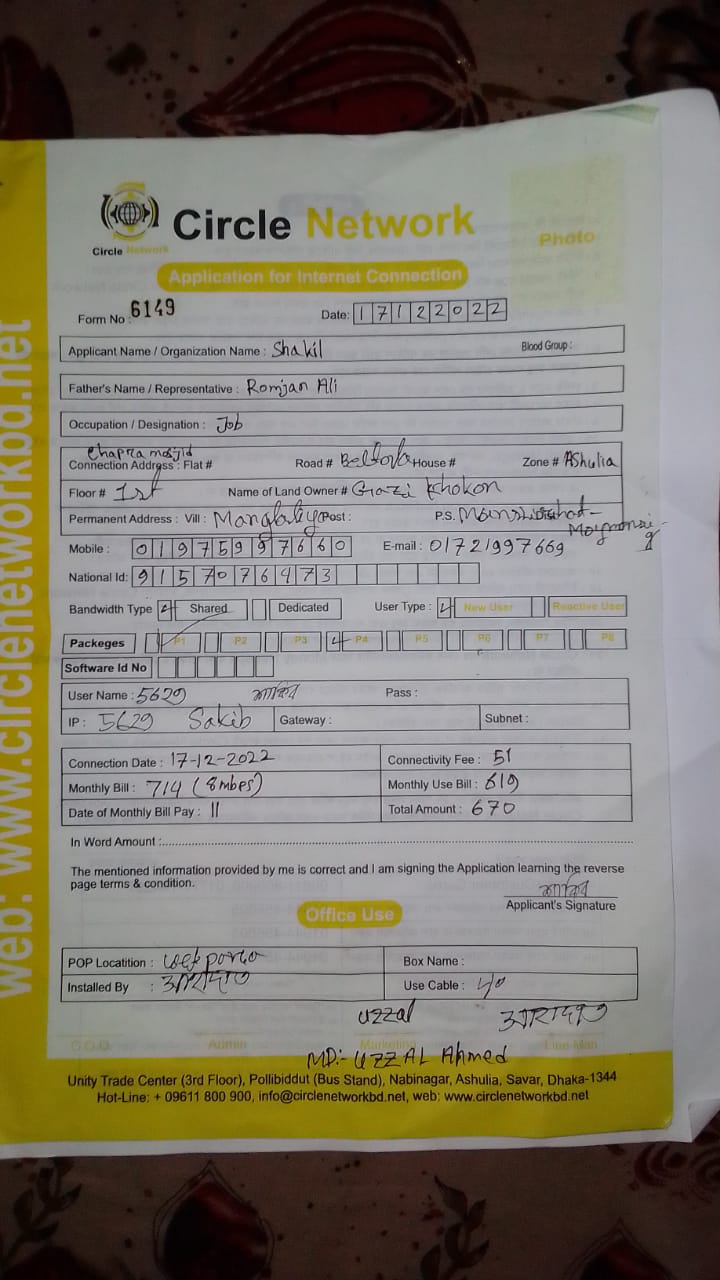 web: www.circlenetworkbd.net
Circle Network
Circle Network
Photo
Application for Internet Connection
Form No : 6149
Date: 17122022
Applicant Name / Organization Name : Shakil Blood Group :
Father's Name / Representative : Romjan Ali
Occupation / Designation : Job
Chapra mosjid
Connection Address : Flat # Road # House # Zone # Ashulia
Floor # 1st Name of Land Owner # Gazi Khokon
Permanent Address : Vill : Post : P.S.
Mobile : 01975997660 E-mail : 01721997669
National Id: 9157076473
Bandwidth Type Shared Dedicated User Type : New User Reactive User
Packeges P1 P2 P3 P4 P5 P6 P7 P8
Software Id No
User Name : 5629 Pass :
IP : 5629 Sakib Gateway : Subnet :
Connection Date : 17-12-2022 Connectivity Fee : 51
Monthly Bill : 714 (8mbps) Monthly Use Bill : 619
Date of Monthly Bill Pay : 11 Total Amount : 670
In Word Amount :
The mentioned information provided by me is correct and I am signing the Application learning the reverse
page terms & condition.
Applicant's Signature
Office Use
POP Locatition : Box Name :
Installed By : Use Cable :
uzzal
C.O.O Admin Marketing Line Man
MD:- UZZAL Ahmed
Unity Trade Center (3rd Floor), Pollibiddut (Bus Stand), Nabinagar, Ashulia, Savar, Dhaka-1344
Hot-Line: + 09611 800 900, info@circlenetworkbd.net, web: www.circlenetworkbd.net